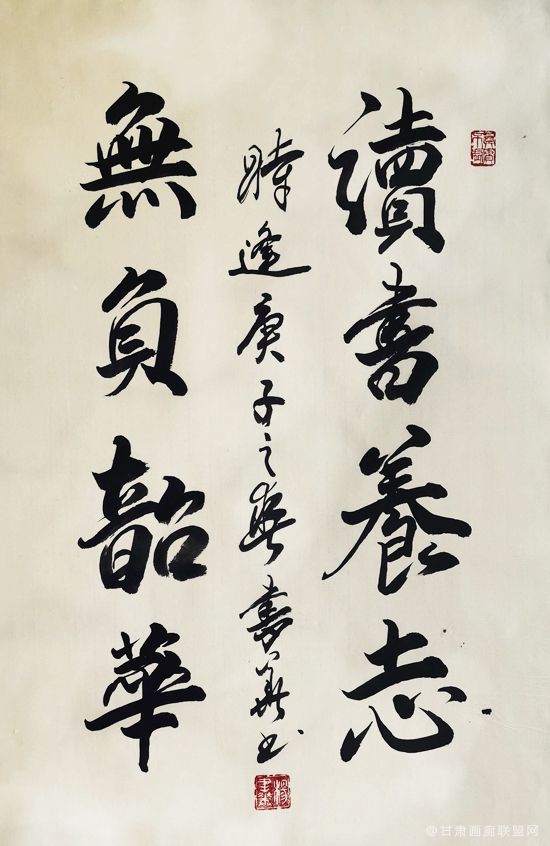 讀書養志
無負韶華
時逢庚子之春書
@甘肃画廊联盟网